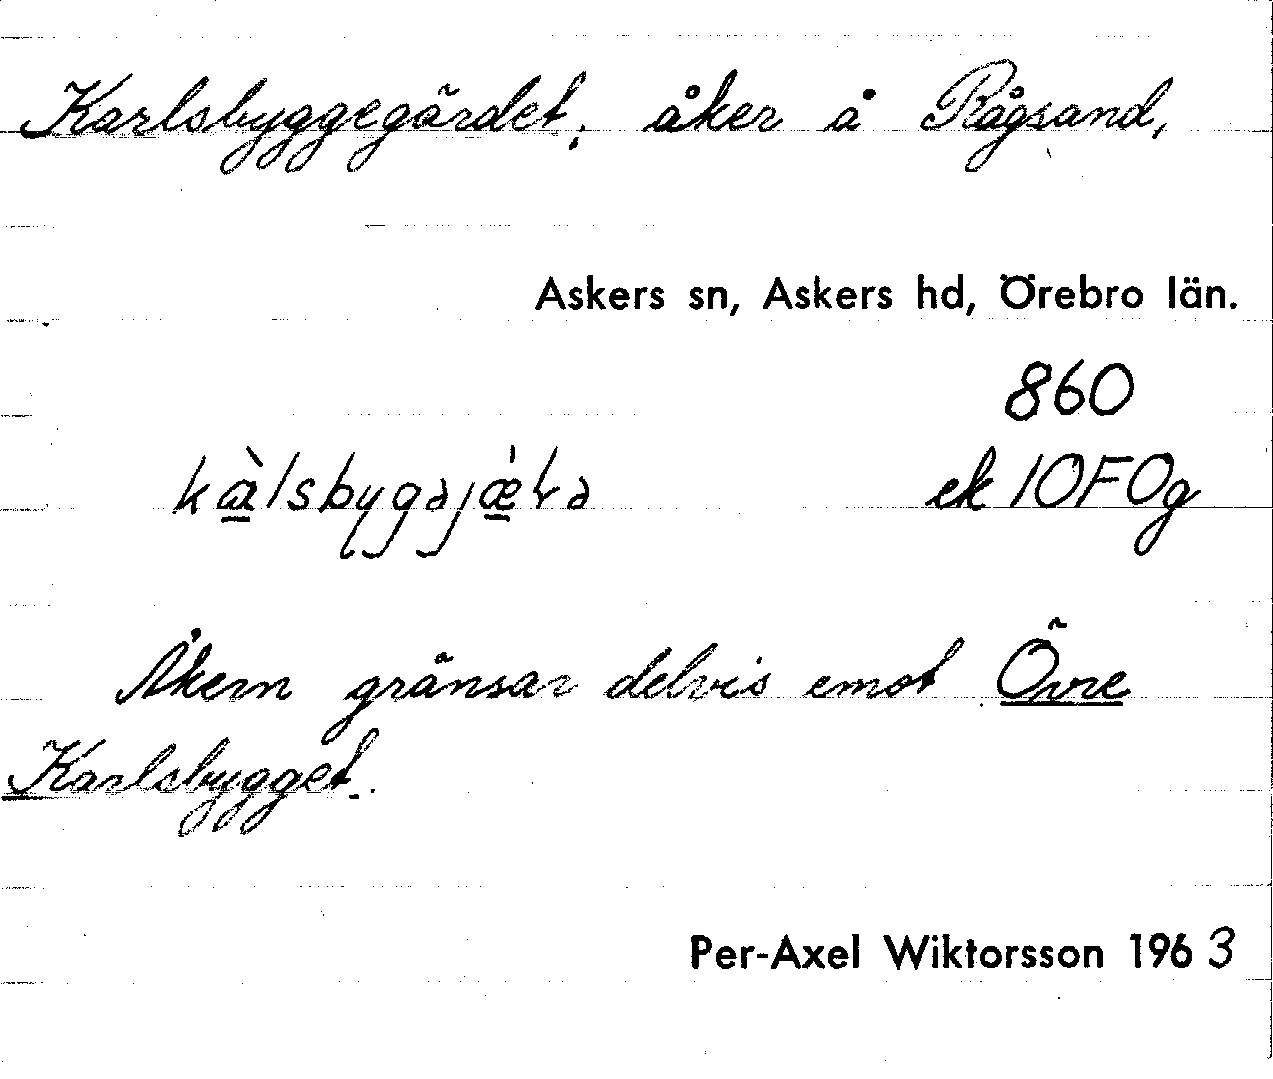 Karlsbyggegärdet, åker å Rågsand,
Askers sn, Askers hd, Örebro län.
860
ek 10F0g
Åkern gränsar delvis emot Övre
Karlsbygget.
Per-Axel Wiktorsson 1963